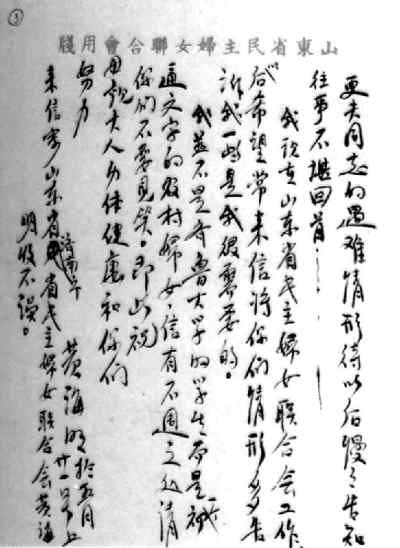 ③
山東省民主婦女聯合會用牋
更夫同志的遇难情形待以后慢々告知
往事不堪回首……
我现在山东省民主婦女联合会工作
后希望常来信将你们情形多告
诉我一些是我很需要的。
我并不是齐鲁大学的学生而是一个初
通文字的农村婦女,信有不週之处请
你们不要见笑。即此祝
母亲大人身体健康和你们
努力
黄海明 月廿一号上
来信寄山东省济南市省民主婦女联合会黄海
明收不误。